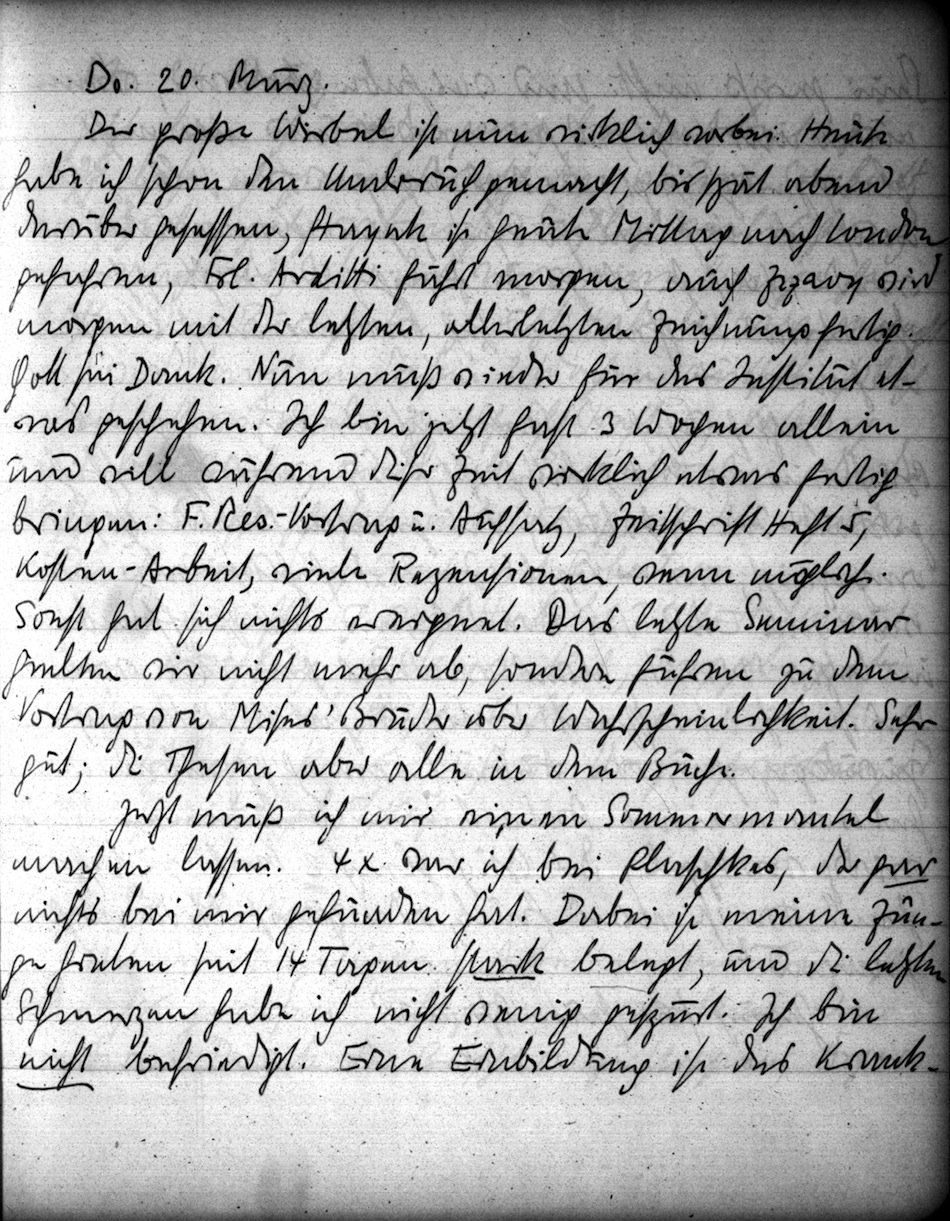 Do. 20. März.
Der große Wirbel ist nun wirklich vorbei. Heute
habe ich schon den Umbruch gemacht, bis spät abend
darüber gesessen, Hayek ist heute Mittag nach London
gefahren, Frl. Arditti fährt morgen, auch wird
morgen mit der letzten, allerletzten Zeichnung fertig.
Gott sei Dank. Nun muß wieder für das Institut et-
was geschehen. Ich bin jetzt fast 3 Wochen allein
und will während dieser Zeit wirklich etwas fertig
bringen: F. Res.-Vortrag u. Aufsatz, Zeitschrift Heft 5,
Kosten-Arbeit, viele Rezensionen, wenn möglich.
Sonst hat sich nichts ereignet. Das letzte Seminar
hielten wir nicht mehr ab, sondern fuhren zu dem
Vortrag von Mises' Bruder über Wahrscheinlichkeit. Sehr
gut; die Thesen aber alle in dem Buche.
Jetzt muß ich mir einen Sommermantel
machen lassen. 4x war ich bei Plaschkes, der gar
nichts bei mir gefunden hat. Dabei ist meine Zun-
ge heute seit 14 Tagen stark belegt, und die letzten
Schmerzen habe ich nicht wenig gespürt. Ich bin
nicht befriedigt. Eine Einbildung ist das Krank-